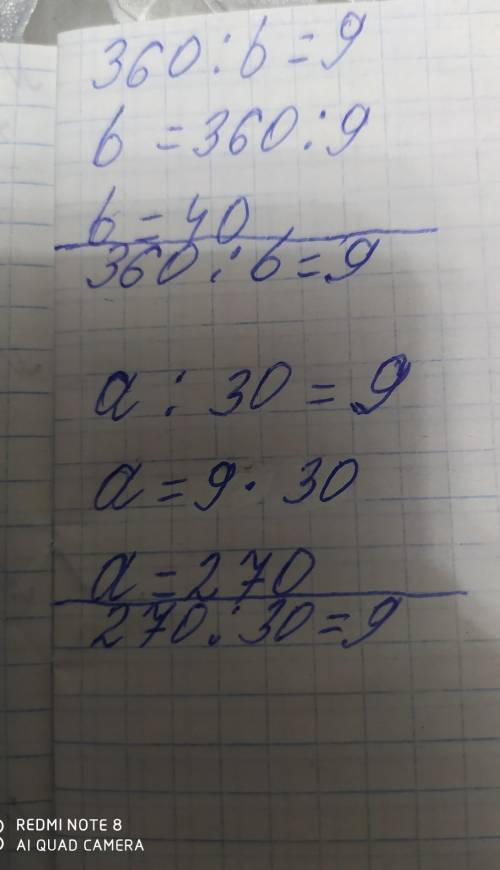 360:b=9
b=360:9
b=40
360:b=9
a:30=9
a=9·30
a=270
270:30=9
REDMI NOTE 8
AI QUAD CAMERA